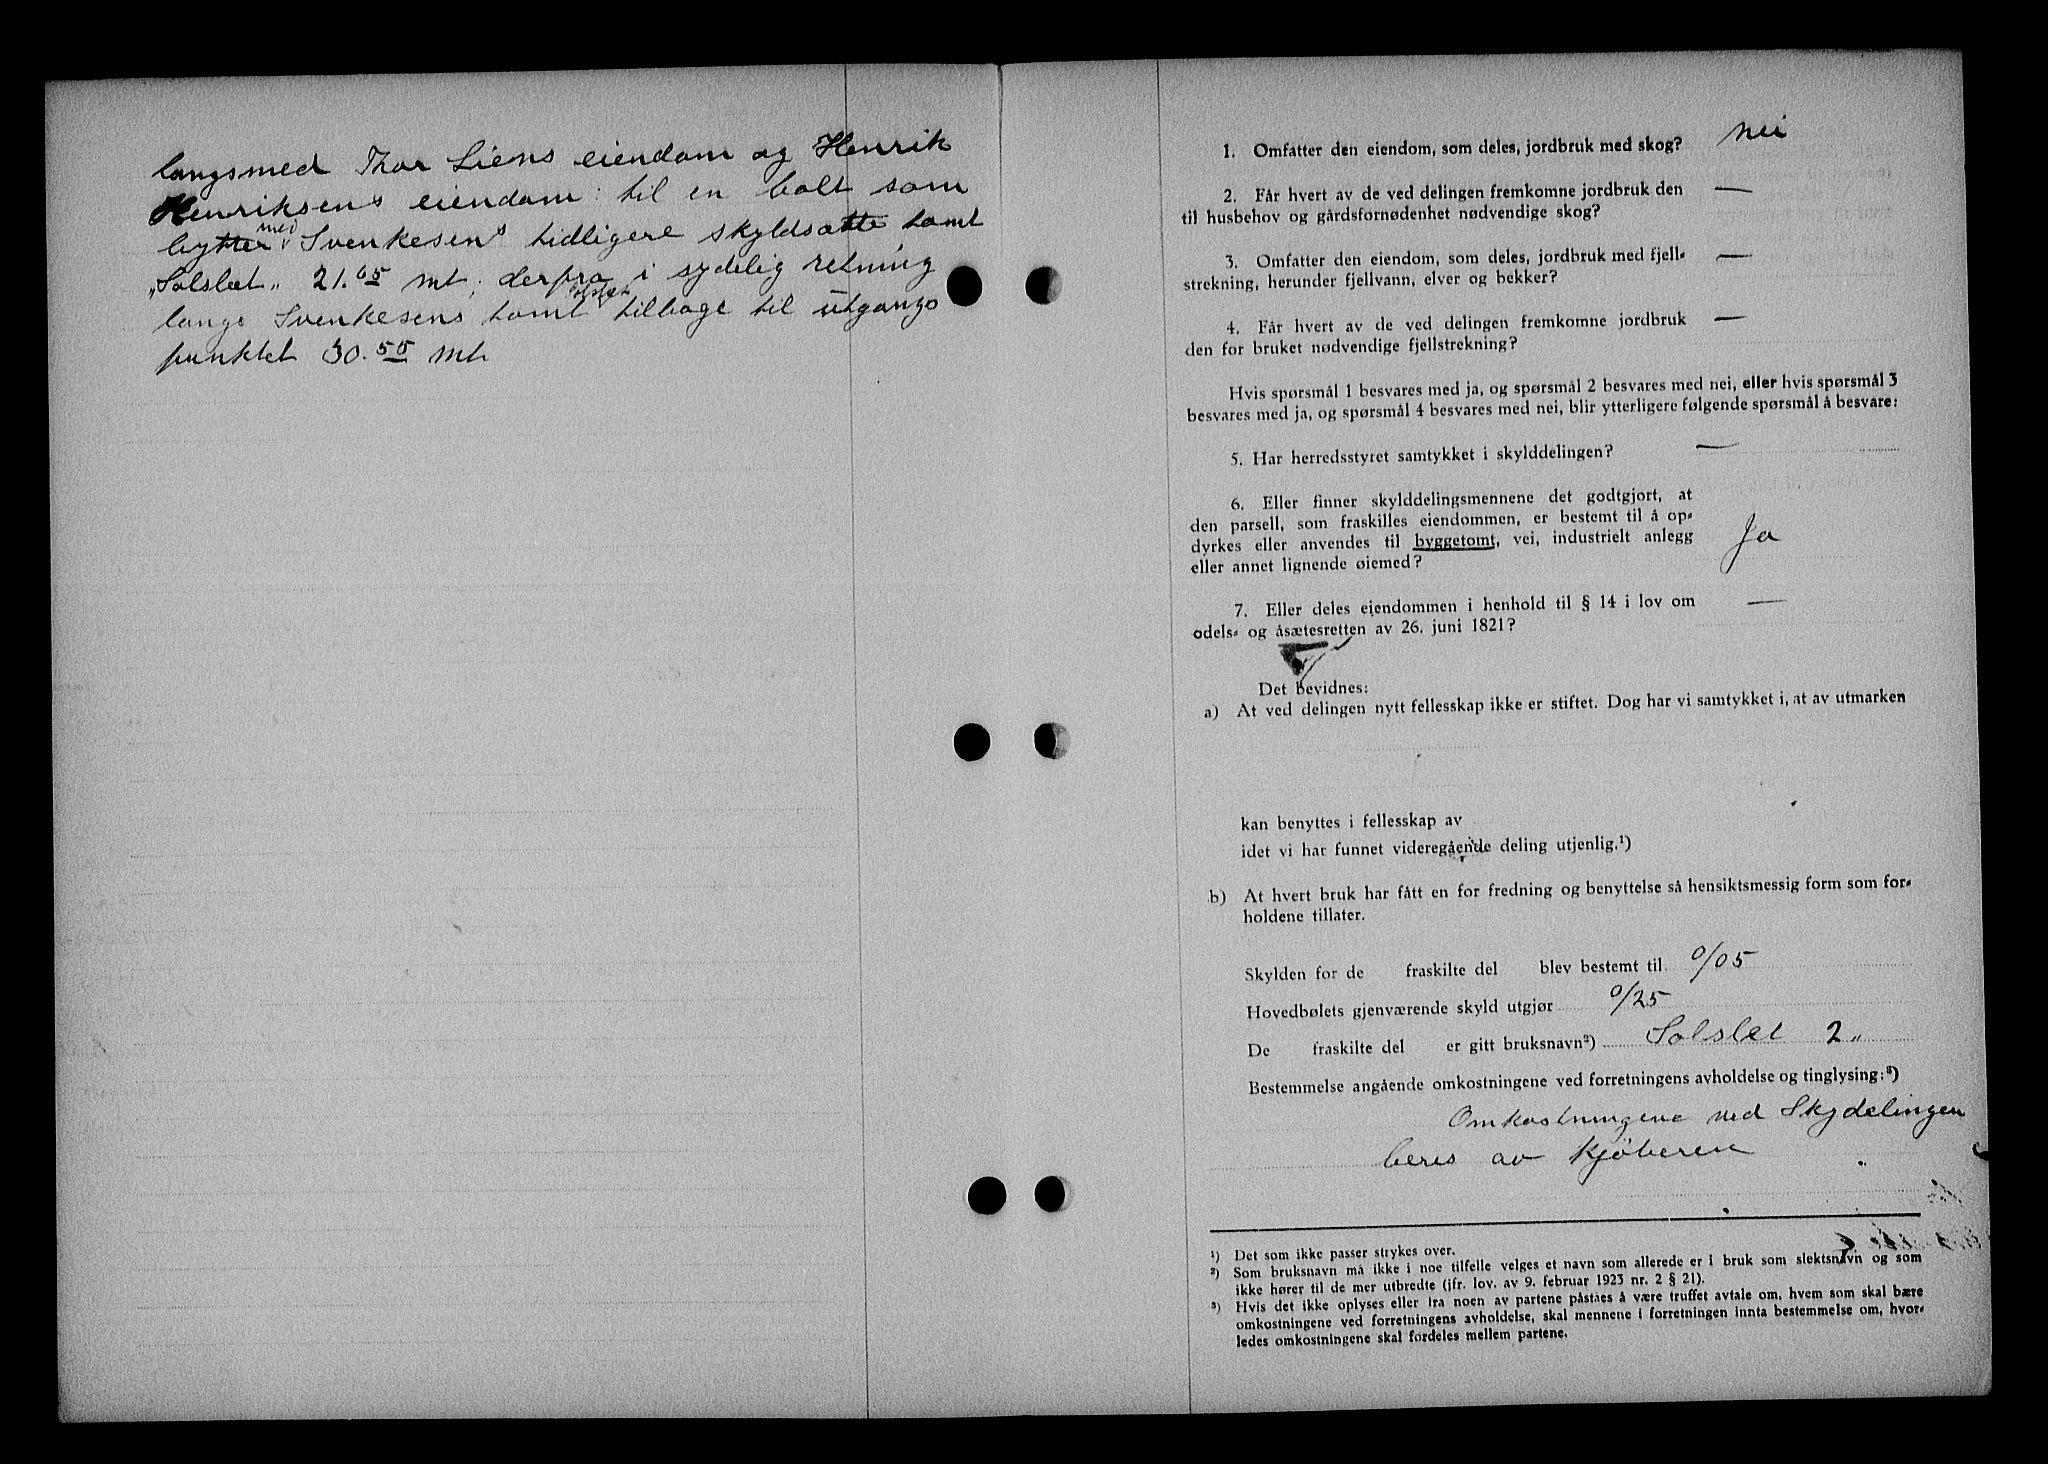 langsmed Thor Liens eiendom og Henrik
Henriksens eiendom til en bolt som
bytter med Svenkesens tidligere skyldsatte tomt
„Solslet„ 21.65 mt, derfra i sydelig retning
langs Svenkesens tomt Solslet tilbage til utgangs
punktet 30.55 mt.
1. Omfatter den eiendom, som deles, jordbruk med skog? nei
2. Får hvert av de ved delingen fremkomne jordbruk den —
til husbehov og gårdsfornødenhet nødvendige skog?
3. Omfatter den eiendom, som deles, jordbruk med fjell- —
strekning, herunder fjellvann, elver og bekker?
4. Får hvert av de ved delingen fremkomne jordbruk —
den for bruket nødvendige fjellstrekning?
Hvis spørsmål 1 besvares med ja, og spørsmål 2 besvares med nei, eller hvis spørsmål 3
besvares med ja, og spørsmål 4 besvares med nei, blir ytterligere følgende spørsmål å besvare:
5. Har herredsstyret samtykket i skylddelingen? —
6. Eller finner skylddelingsmennene det godtgjort, at
den parsell, som fraskilles eiendommen, er bestemt til å op-
dyrkes eller anvendes til byggetomt, vei, industrielt anlegg Ja
eller annet lignende øiemed?
7. Eller deles eiendommen i henhold til § 14 i lov om —
odels- og åsætesretten av 26. juni 1821?
Det bevidnes:
a) At ved delingen nytt fellesskap ikke er stiftet. Dog har vi samtykket i, at av utmarken
kan benyttes i fellesskap av
idet vi har funnet videregående deling utjenlig.¹)
b) At hvert bruk har fått en for fredning og benyttelse så hensiktsmessig form som for-
holdene tillater.
Skylden for de fraskilte del blev bestemt til 0/05
Hovedbølets gjenværende skyld utgjør 0/25
De fraskilte del er gitt bruksnavn²) Solslet 2„
Bestemmelse angående omkostningene ved forretningens avholdelse og tinglysing:³)
Omkostningene ved Skydelingen
beres av kjøberen
¹) Det som ikke passer strykes over.
²) Som bruksnavn må ikke i noe tilfelle velges et navn som allerede er i bruk som slektsnavn og som
ikke hører til de mer utbredte (jfr. lov. av 9. februar 1923 nr. 2 § 21).
³) Hvis det ikke oplyses eller fra noen av partene påstås å være truffet avtale om, hvem som skal bære
omkostningene ved forretningens avholdelse, skal mennene i forretningen innta bestemmelse om, hvor-
ledes omkostningene skal fordeles mellem partene.